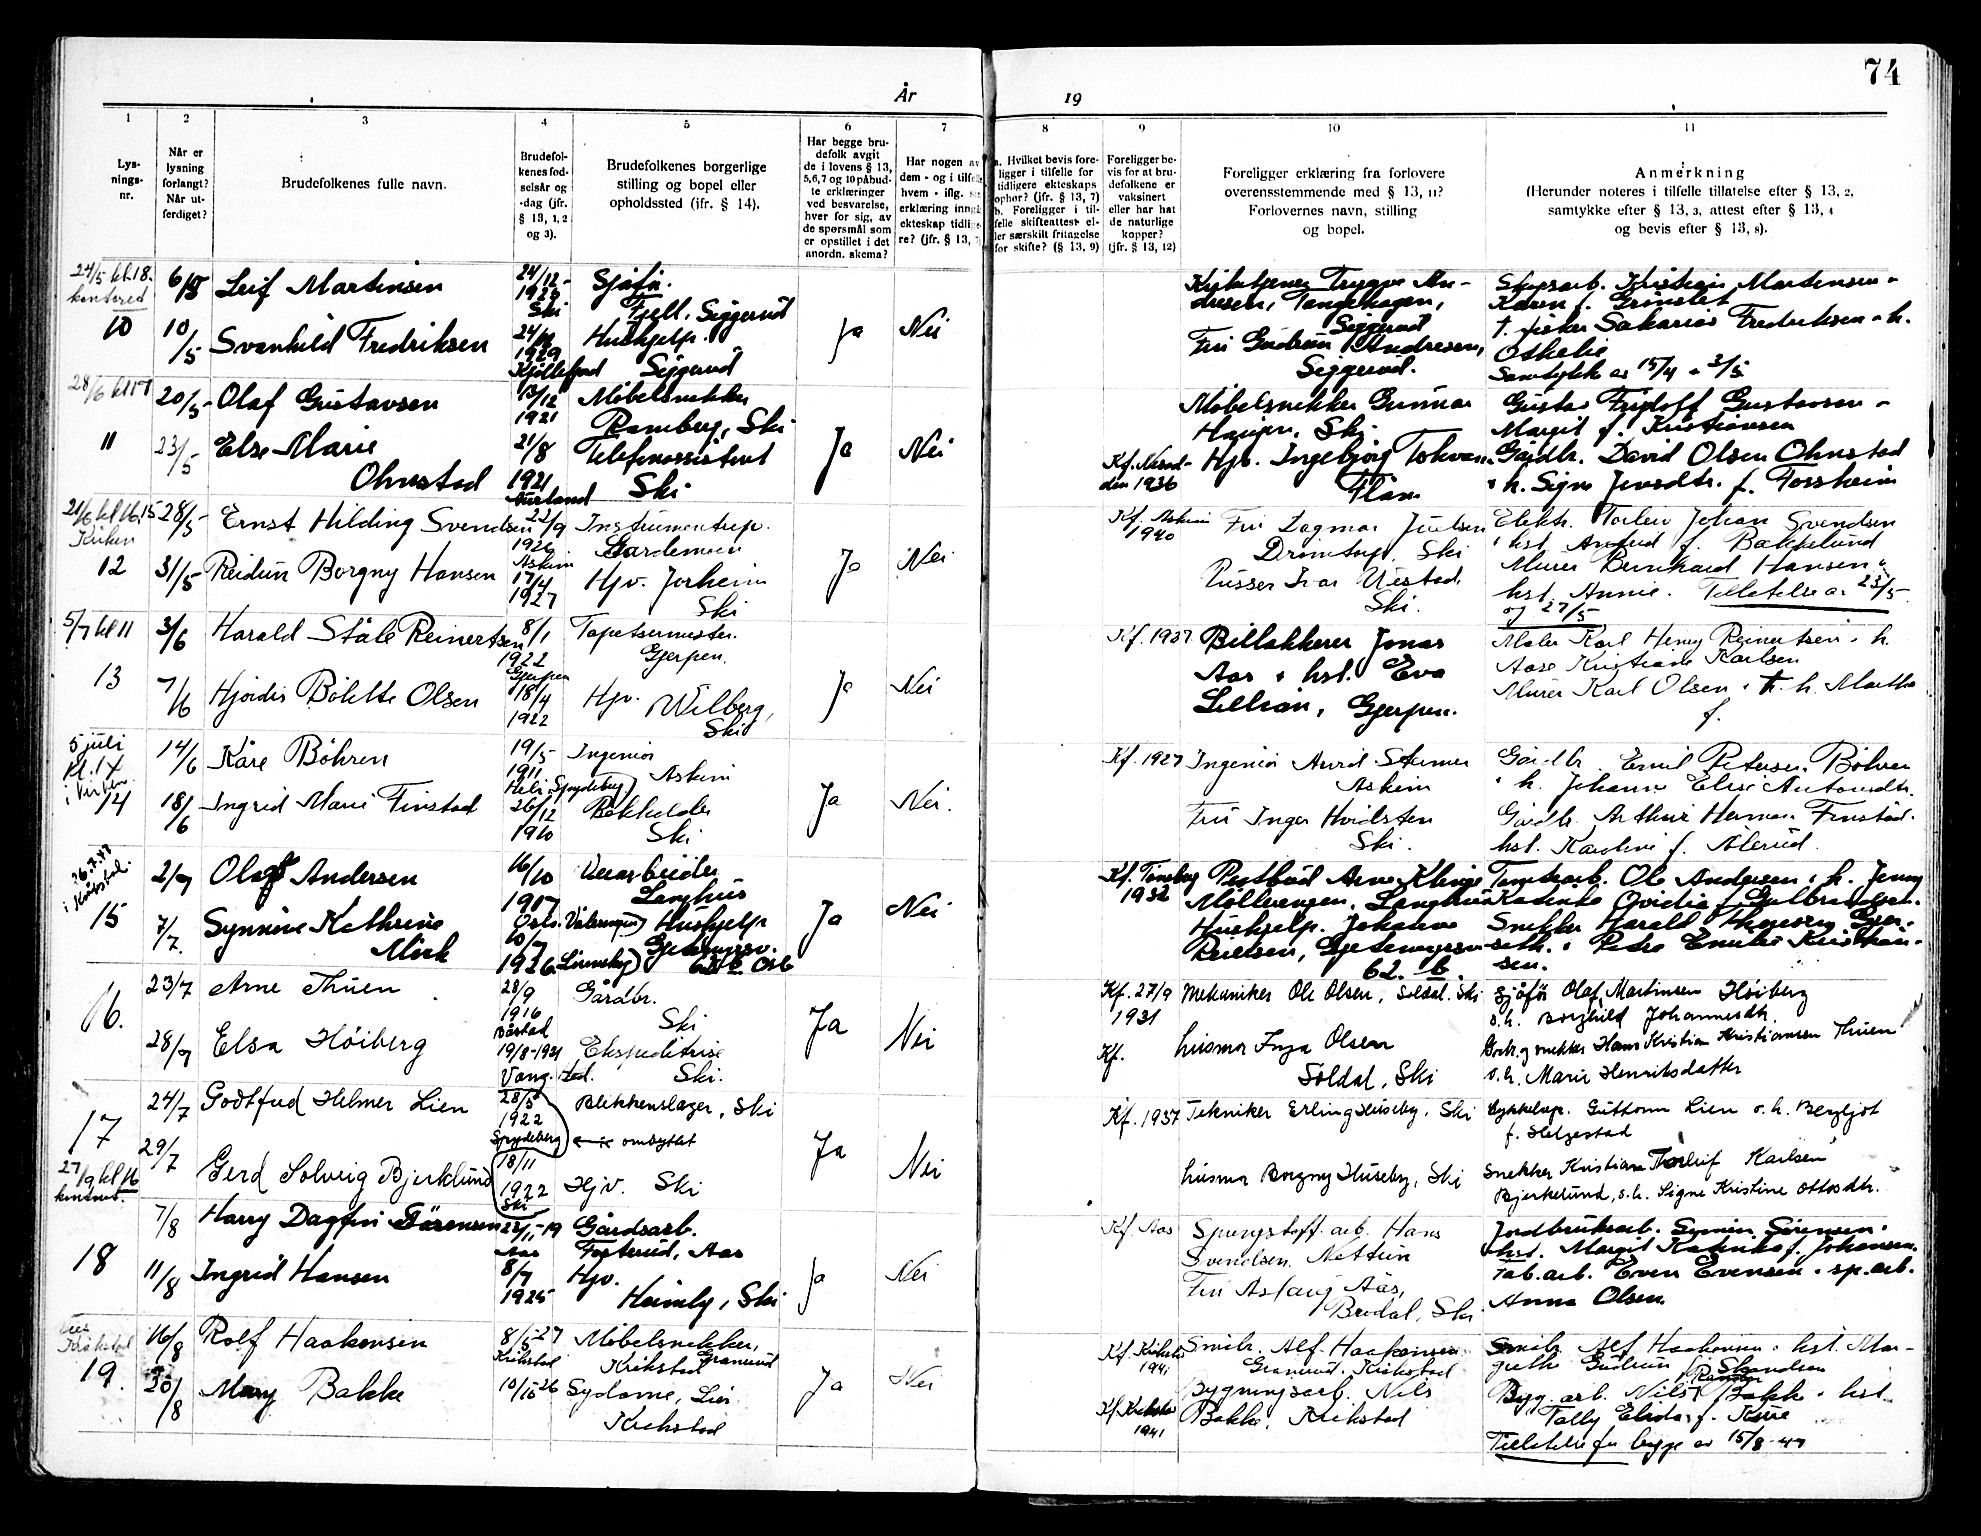 74
År 19
1 2 3 4 5 6 7 8 9 10 11
Lys-
nings-
nr.
Når er
lysning
forlangt?
Når ut-
ferdiget?
Brudefolkenes fulle navn.
Brudefol-
kenes fød-
selsår og
-dag (jfr.
§ 13, 1, 2
og 3).
Brudefolkenes borgerlige
stilling og bopel eller
opholdssted (ifr. § 14).
Har begge bru-
defolk avgit
de i lovens § 13,
5,6,7 og 10 påbud-
te erklæringer
ved besvarelse,
hver for sig, av
de spørsmål som
er opstillet i det
anordn. skema?
Har nogen av
dem - og i tilfelle
hvem - iflg.
erklæring inngå
ekteskap tidlige-
re? (jfr. § 13,
a. Hvilket bevis fore-
ligger i tilfelle for
tidligere ekteskaps
ophør? (jfr. § 13, 7)
b. Foreligger i til-
felle skifteattest el-
ler særskilt fritagelse
for skifte? (§ 13, 9)
Foreligger be-
vis for at bru-
defolkene er
vaksinert
eller har hat
de naturlige
kopper?
(jfr. § 13, 12)
Foreligger erklæring fra forlovere
overensstemmende med § 13, 11?
Forlovernes navn, stilling
og bopel.
Anmerkning
(Herunder noteres i tilfelle tillatelse efter § 13, 2,
samtykke efter § 13, 3, attest efter § 13, 4
og bevis efter § 13, 8).
24/5 kl. 18.
10
6/5 Leif Martinsen
24/12-
1926
Ski
Sjåfør.
Fjell, Siggerud
10/5 Svanhild Fredriksen
1929
Kjøllefjord
Hushjelp.
Siggerud
Ja Nei
Kirketjener Trygve An-
dresen, Tangehagen,
Siggerud
Fru Gudrun Andresen,
Siggerud.
Skogsarb. Kristian Martinsen
Karen f. Grønslet
f. fisker Sakarias Fredriksen o h.
Samtykke av 15/4 o 2/5
28/6 kl 17
11
20/5 Olaf Gustavsen
13/12
1921
Møbelsnekker
Ramberg, Ski
23/5 Else Marie
Ohnstad
21/8
1921
Aurland
Telefonassistent
Ski
Ja Nei
1936
Møbelsnekker Gunnar
Haugen, Ski
Hjv. Ingebjørg
Flåm
Gustav Fridolf Gustavsen
Margit f. Kristiansen
Gårdbr. David Olsen Ohnstad
o h. Signe Jensdtr. f. Forsheim
21/6 kl 16.15
Kirken
12
28/5 Ernst Hilding Svendsen
22/9
1926
Askim
Instrumentrep.
Gardemoen
31/5 Reidun Borgny Hansen
17/4
1927
Hjv. Jorheim
Ski
Ja Nei
Kf. Askim
1940
Fru Dagmar Juelsen
Drømtorp, Ski
Pusser Ivar Uestad,
Ski.
Elektr. Torleiv Johan Svendsen
Murer Bernhard Hansen
hst. Annie. Tillatelse av 23/5
og 27/5
5/7 kl 11
13
3/6 Harald Ståle Reinertsen
8/1
1922
Gjerpen
Tapetsermester.
Gjerpen.
7/6 Hjørdis Bolette Olsen
18/4
1922
Hjv. Wilberg,
Ski
Ja Nei
Kf. 1937
Billakkerer Jonas
Aas o hst. Eva
Lillian, Gjerpen.
Maler Karl Henry Reinertsen o h.
Aase Kristiane Karlsen
Murer Karl Olsen o h. Martha
f.
5 juli
kl. 17
i Kirken
14
14/6 Kåre Böhren
19/5
1911
Heli, Spydeberg
Ingeniør
Askim
18/6 Ingrid Marie Finstad
26/12
1910
Bokholder
Ski
Ja Nei.
Kf. 1927
Ingeniør Arvid Stermer
Askim
Fru Inger Hvidsten
Ski.
Gårdbr. Emil Petersen Böhren
o h. Johanne Elise Antonsdtr.
Gårdbr. Arthur Herman Finstad.
hst. Karoline f. Ålerud.
26.7.47
i Kråkstad.
15
2/7 Olaf Andersen
16/10
1907
Oslo. Vålerengen
Veiarbeider
Langhus
7/7. Synnøve Kathrine
Mörk
10/7
1926
Hushjelp
Gjetemyrsv.
62 b Oslo
Ja Nei
Kf. Tønsberg
1932
Postbud Arne Klinge
Möllerengen, Langhus
Hushjelp. Johanne
Reiersen, Gjetemyrsv.
62. b.
Tomtearb. Ole Andersen o h. Jenny
Katinka Ovidia f. Gulbrandsen.
Snekker Harald
Petra Emilie Kristian-
sen.
16.
23/7 Arne Thuen
28/9
1916
Båstad
Gårdbr.
Ski
28/7 Elsa Höiberg
19/8-1921
Vang. Hed.
Ekspeditrise
Ski.
Ja Nei
Kf. 27/9
1931
Kf.
Mekaniker Ole Olsen, Soldal. Ski
husmor Inga Olsen
Soldal, Ski
Sjåför Olaf Martinsen Höiberg
o.h. Borghild Johannesdtr.
Gårdbr. og snekker Hans Kristian Kristiansen Thuen
o.h. Marie Henriksdatter
17
27/9 kl 16
24/7 Godtfred Helmer Lien
28/5
1922
Spydeberg
Blikkenslager, Ski
ombyttet
29/7 Gerd Solveig Bjerklund
18/11
1922
Ski
Hjv. Ski
Ja Nei
Kf. 1937
Tekniker Erling Huseby, Ski
husmor Borgny Huseby, Ski
Sykkelrep. Guttorm Lien o.h. Bergljot
f. Helgestad
Snekker Kristian Torleif Karlsen
Bjerkelund, o.h. Signe Kristine Ottosdtr.
18
7/8 Harry Dagfin Sörensen
Aas
Gårdsarb.
Fosterud, Aas
11/8 Ingrid Hansen
8/7
1925
Hjv.
Heimly, Ski
Ja Nei
Kf. Aas
Sprengstoff. arb. Hans
Svendsen, Nettun
Fru Aslaug Aas,
Brodal, Ski
Jordbruksarb. Symin Sörensen o
hst. Margit Katinka f. Johansen.
Fab. arb. Even Evensen o sp. arb.
Anna Olsen.
Kråkstad
19.
16/8 Rolf Haakonsen
8/5-27
Kråkstad
Möbelsnekker,
Granerud
Kråkstad
20/8 Mary Bakke
10/10 26
Sydame, Lier
Kråkstad
Ja Nei
Kf. Kråkstad
1941
Kf. Kråkstad
1941
Smelv. Alf Haakonsen
Granerud. Kråkstad
Bygningsarb. Nils
Bakke, Kråkstad
Alf Haakonsen o hst. Mar-
grethe Gudrun f. Strandsen
Byg. arb. Nils Bakke o hst
Tally Elida f.
Tillatelse for begge av 15/8-47